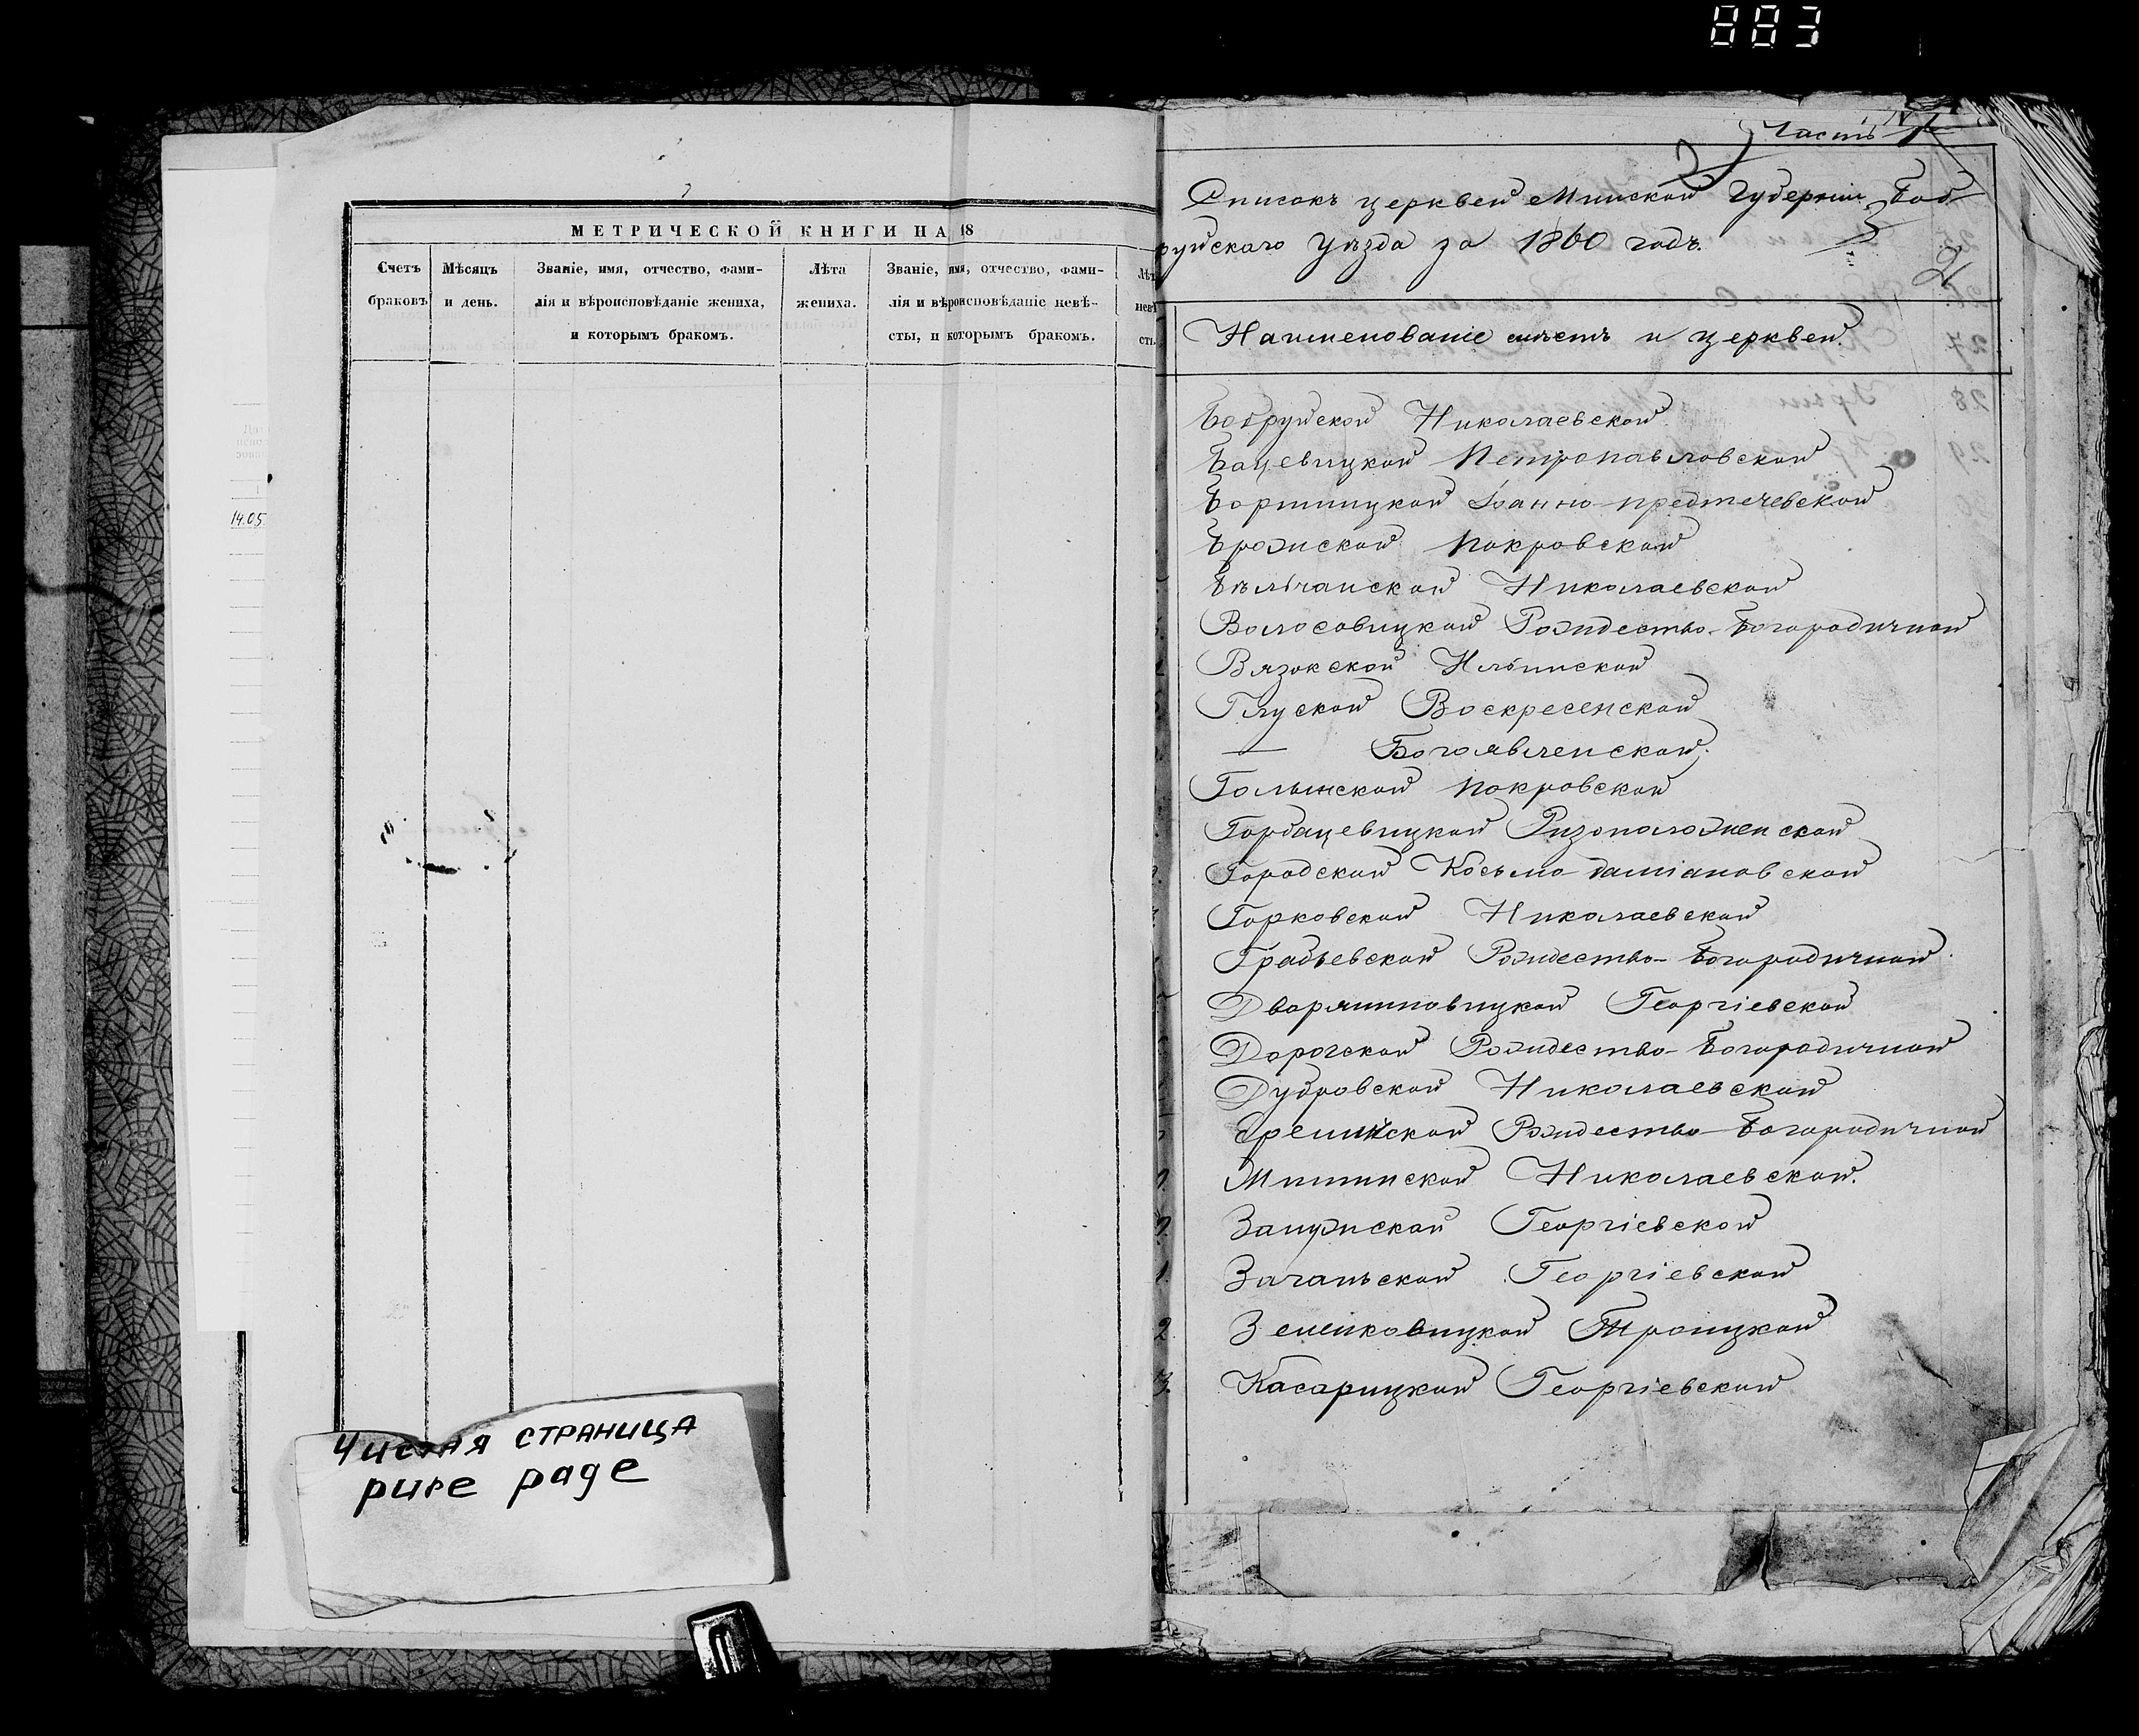 883
МЕТРИЧЕСКОЙ КНИГИ НА 18
Счетъ браковъ
Мѣсяцъ и день.
Званіе, имя, отчество, фами-
лія и вѣроисповѣданіе жениха,
и которымъ бракомъ.
Лѣта
жениха.
Званіе, имя, отчество, фами-
лія и вѣроисповѣданіе невѣ-
сты, и которымъ бракомъ.
14.05
Чистая страница
pure page
Часть 1
Списокъ церквей Минской Губерніи Боб
руйскаго Уѣзда за 1860 годъ.
2
Наименованіе мѣстъ и церквей
Бобруйской Николаевской
Бацевицкой Петропавловской
Бортницкой Іоанно-предтечевской
Брожской Покровской
Бѣльчанской Николаевской
Волосовицкой Рождество-Богородичной
Вязокской Ильинской
Глуской Воскресенской
— Богоявленской
Голынской Покровской
Горбацевицкой Ризоположенской
Городской Косьмо-даміановской
Горковской Николаевской
Градьевской Рождество-Богородичной
Дворяниновицкой Георгіевской
Дорогской Рождество-Богородичной
Дубровской Николаевской
Еремійской Рождество-Богородичной
Николаевской.
Запужской Георгіевской
Зачанской Георгіевской
Зеленковицкой Троицкой
Касарицкой Георгіевской